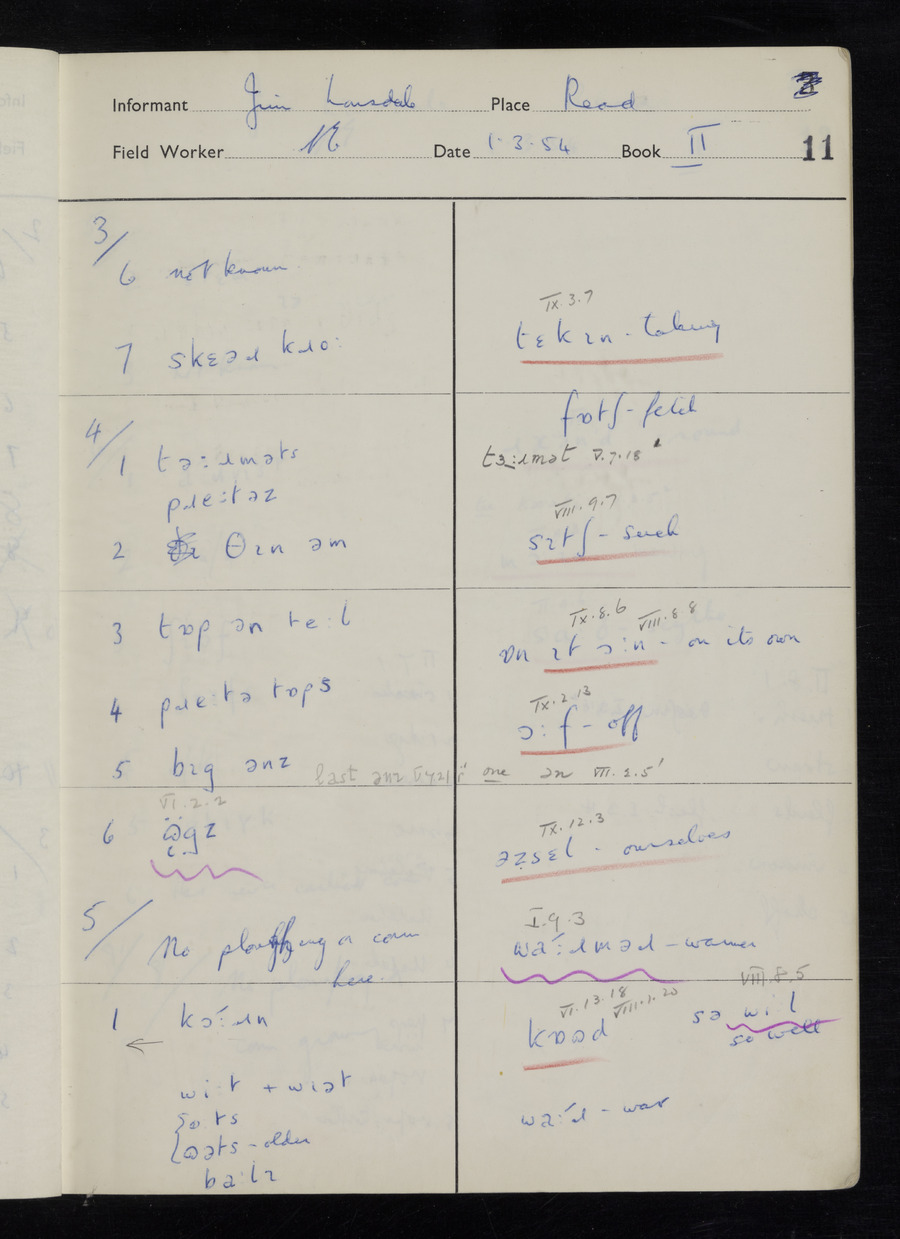 Informant Jim Lonsdale Place Read
Field Worker Date 1.3.54 Book II 11
3/
6 not known.
7 skɛəɹ kɹɔː
4/
1 təːɹməts
pɹeːtəz
2 θɪn əm
3 tɒp ən teːl
4 pɹeːtə tɒps
5 bɪg ənz last ənz V.7.21 one ən VII.2.5
VI.2.2
6 gz
5/
No ploughing or corn
here.
1 kɔːɹn
←
wiːt + wiət
oːts
ɷəts - older
baːlɪ
IX.3.7
tɛkɪn - taking
fɒtʃ - fetch
tɜːɹmət V.7.18
VIII.9.7
sɪtʃ - such
IX.8.6 VIII.8.8
ɒn ɪt ɔːn - on its own
IX.2.13
ɔːf - off
IX.12.3
əzsɛl - ourselves
I.9.3
waːɹməɹ - warmer
VIII.8.5
VI.13.18 VIII.1.20
sə wil
so well
waːɹ - war